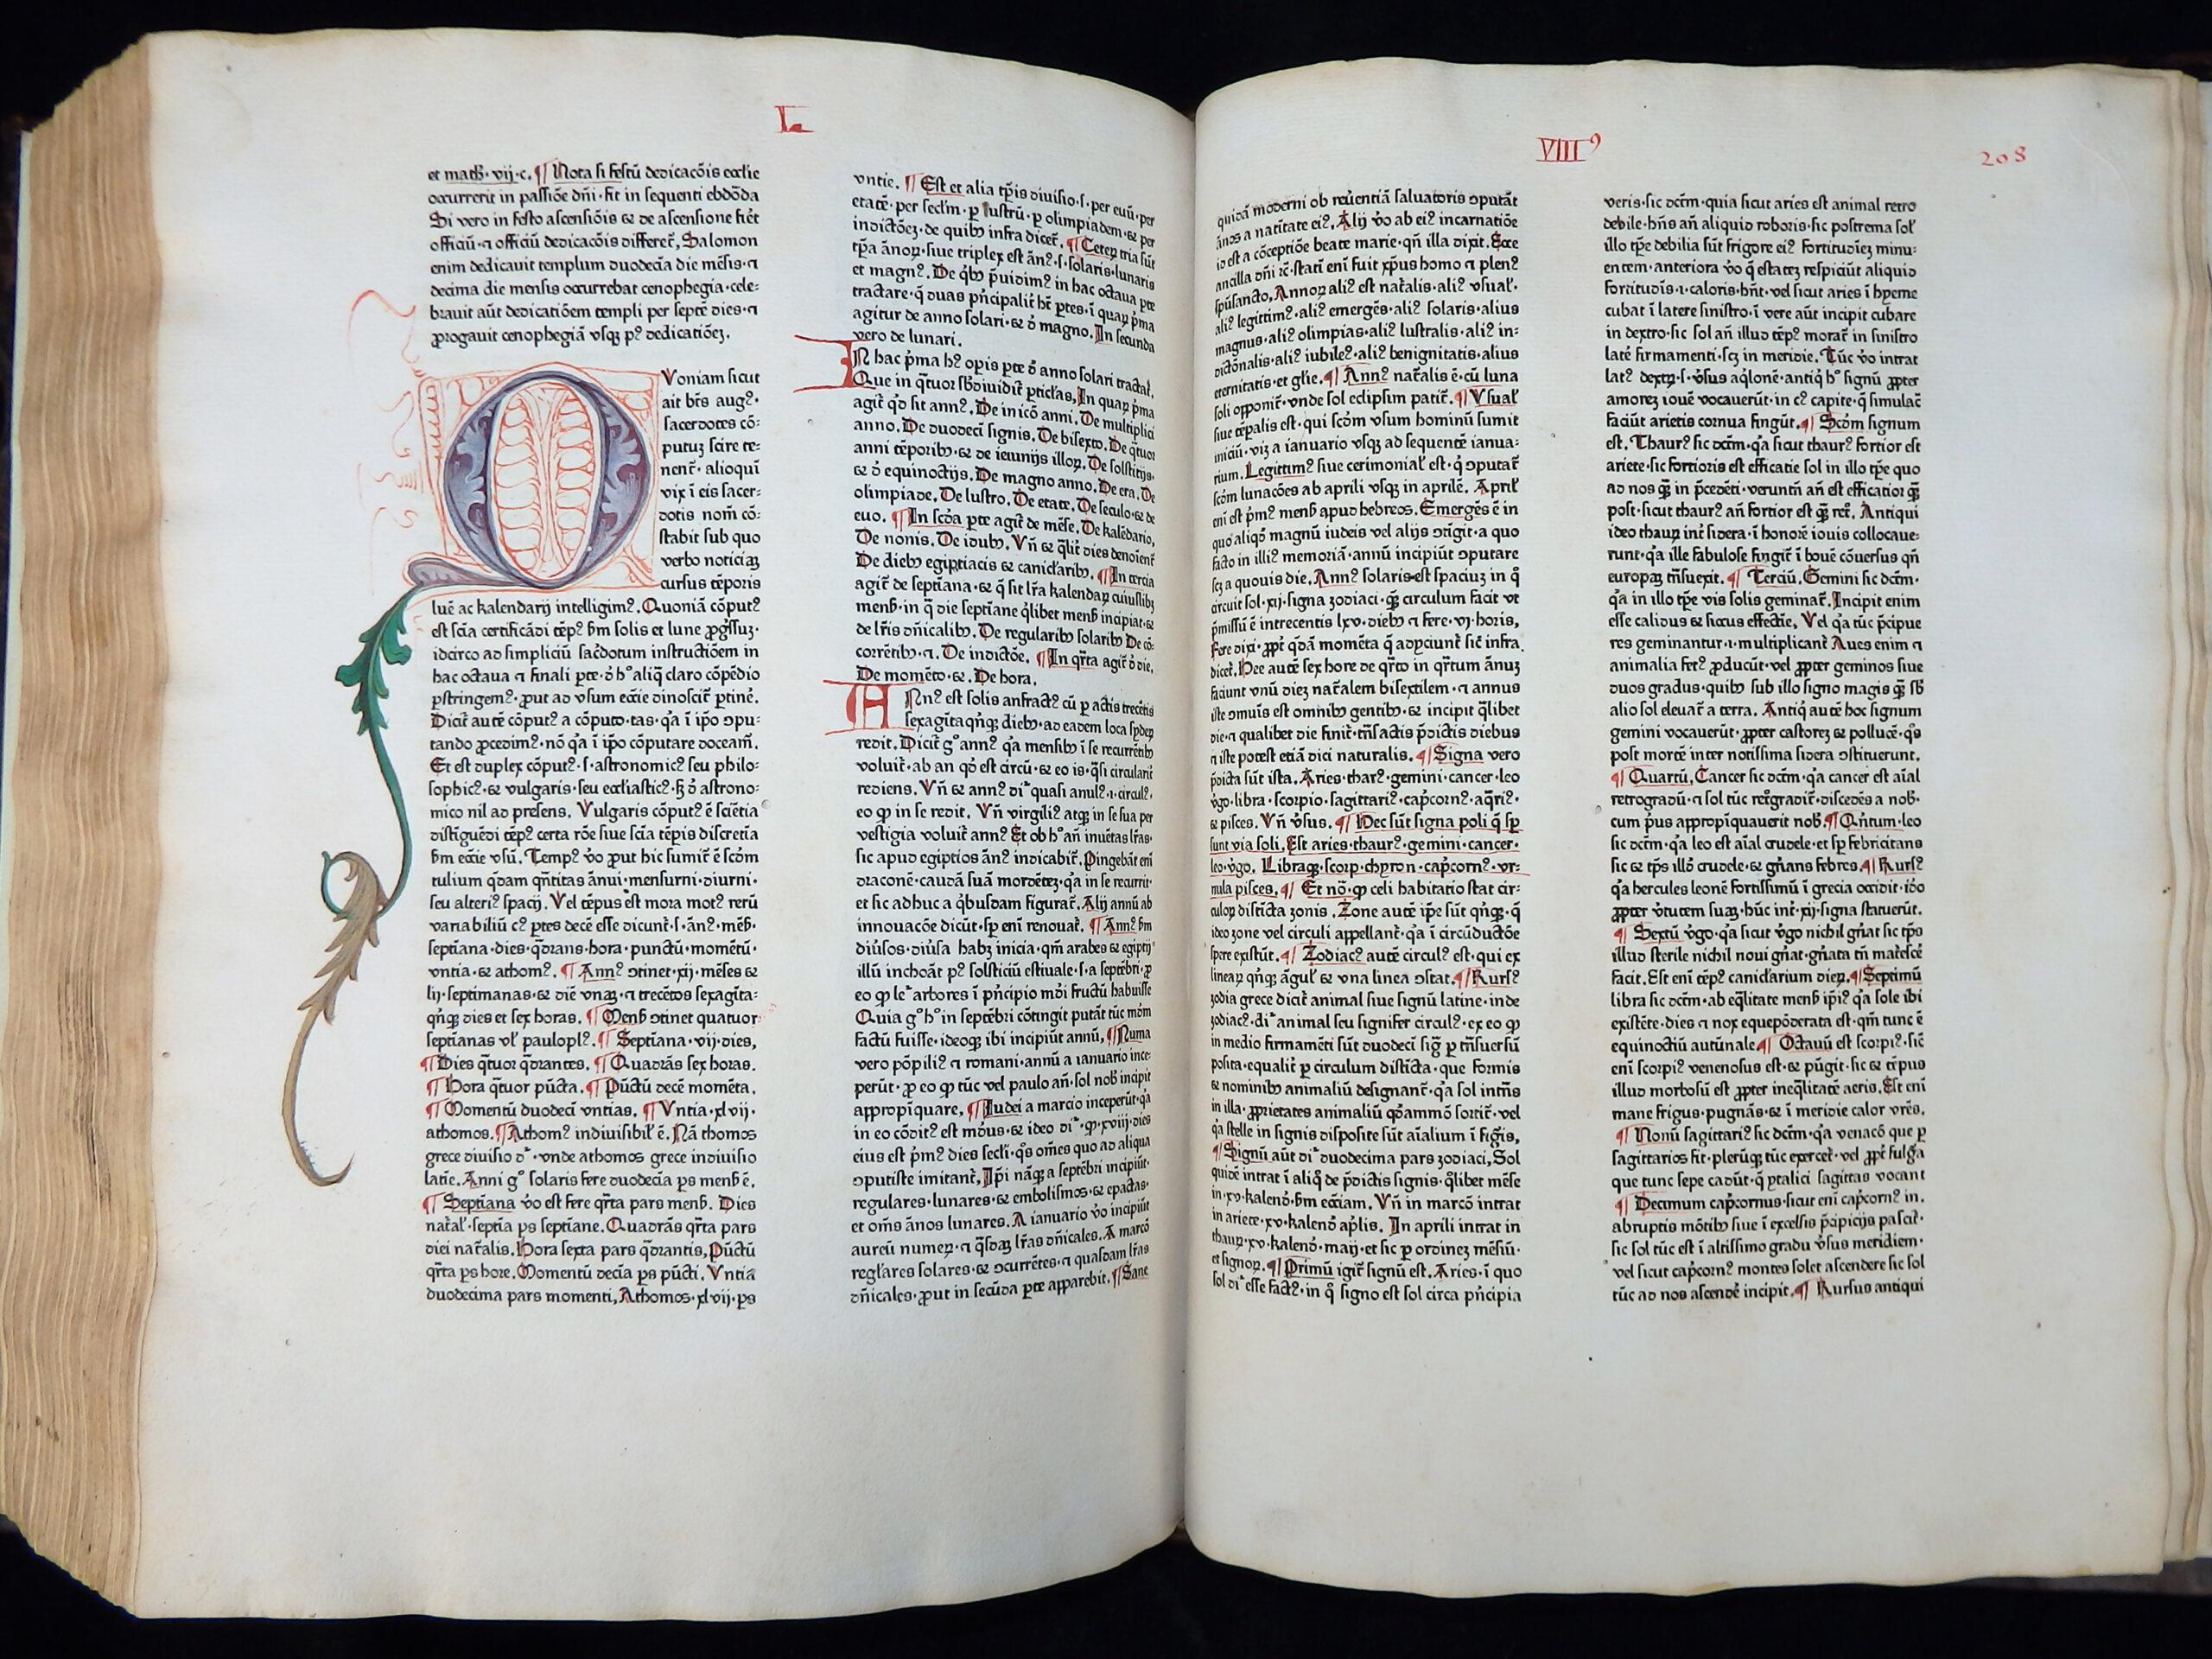 L.
et math· vij·c. ¶ Nota si festũ dedicacõis ecclie
occurrerit in passiõe dñi·fit in sequenti ebdõda
Si vero in festo ascensiõis & de ascensione fiet
officiũ·⁊ officiũ dedicacõis differet̃, Salomon
enim dedicauit templum duodecĩa die mẽsis·⁊
decima die mensis occurrebat cenophegia·cele:
brauit aũt dedicatiõem templi per septẽ dies·⁊
ꝓrogauit cenophegiã vsqꝫ pꝰ dedicatiõeꝫ.
QVoniam sicut
ait br̃s augꝰ·
sacerdotes cõ:
putuꝫ scire te:
nent̃·alioqui
vix ĩ eis sacer:
dotis nom̃ cõ:
stabit sub quo
verbo noticiaꝫ
cursus tẽporis
luẽ ac kalendarij intelligimꝰ. Quoniã cõputꝰ
est scĩa certificãdi tẽpꝰ ẞm solis et lune ꝓgr̃ssuꝫ·
idcirco ad simpliciũ sac̃dotum instructiõem in
hac octaua ⁊ finali ꝑte·ð hᵒ aliq̃ claro cõpẽdio
ꝑstringemꝰ·ꝓut ad vsum ecc̃ie dinoscit̃ ꝑtinẽ.
Dicit̃ autẽ cõputꝰ a cõputo·tas·q̃a ĩ ip̃o ↄpu:
tando ꝓcedimꝰ·nõ q̃a ĩ ip̃o cõputare doceam̃.
Et est duplex cõputꝰ·s·astronomicꝰ seu philo:
sophicꝰ·& vulgaris·seu ecclesiasticꝰ·ꝫ ð astrono:
mico nil ad presens. Vulgaris cõputꝰ ẽ sciẽtia
distĩguẽdi tẽpꝰ certa rõe siue scĩa tẽpis discretĩa
ẞm ecc̃ie vsũ. Tempꝰ v̊o ꝓut hic sumit̃ ẽ scd̃m
tulium q̃dam qñtitas ãnui·mensurni·diurni·
seu alteriꝰ spacij. Vel tẽpus est mora motꝰ rerũ
variabiliũ cꝰ ꝑtes decẽ esse dicunt̃·s·ãnꝰ·mẽß·
septĩana·dies·q̃drans·hora·punctũ·momẽtũ·
vntia·& athomꝰ. ¶ Annꝰ ↄtinet·xij·mẽses &
lij·septimanas·& diẽ vnaꝫ·⁊ trecẽtos sexagĩta:
q̃nqꝫ dies et sex horas. ¶ Menß ↄtinet quatuor
septĩanas vl̃ pauloplꝰ. ¶ Septĩana·vij·dies,
¶ Dies q̃tuor q̃drantes. ¶ Quadrãs sex horas.
¶ Hora q̃tuor pũcta. ¶ Pũctũ decẽ momẽta.
¶ Momentũ duodecĩ vntias. ¶ Vntia·xlvij·
athomos. ¶ Athomꝰ indiuisibil̃ ẽ. Nã thomos
grece diuisio dr̃·vnde athomos grece indiuisio
latĩe. Anni gᵒ solaris fere duodecĩa ps menß ẽ.
¶ Septĩana v̊o est fere q̃rta pars menß. Dies
nat̃al̃·septĩa ps septĩane. Quadrãs q̃rta pars
diei nat̃alis. Hora sexta pars q̃drantis, Pũctũ
q̃rta ps hore. Momentũ decĩa ps pũcti. Vntia
duodecima pars momenti, Athomos·xlvij·ps
vntie. ¶ Est et alia tp̃is diuisio·s·per euũ·per
etatẽ·per secl̃m·ꝑ lustrũ·ꝑ olimpiadem·& per
indictõeꝫ·de quibꝫ infra dicet̃. ¶ Ceteꝝ tria sũt
tp̃a ãnoꝝ·siue triplex est ãnꝰ·s·solaris·lunaris
et magnꝰ. De q̃bꝫ p̃uidimꝰ in hac octaua ꝑte
tractare·q̃ duas p̃ncipalit̃ hẽ ꝑtes·ĩ quaꝝ p̃ma
agitur de anno solari·& ð magno. In secunda
vero de lunari.
IN hac p̃ma hꝰ opis ꝑte ð anno solari tractat̃.
Que in q̃tuor sb̃diuidit̃ ꝑticl̃as, In quaꝝ p̃ma
agit̃ q̃d sit annꝰ. De inicõ anni. De multiplici
anno. De duodecĩ signis. De bisexto. De q̃tuor
anni tẽporibꝫ·& de ieiunijs illoꝝ. De solstitijs·
& ð equinoctijs. De magno anno. De era. De
olimpiade. De lustro. De etate. De seculo·& de
euo. ¶ In scd̃a ꝑte agit̃ de mẽse. De kalẽdario.
De nonis. De idubꝫ. Vñ & q̃lit̃ dies denoĩent̃
De diebꝫ egiptiacis & canicl̃aribꝫ. ¶ In tercia
agit̃ de septĩana·& q̃ sit lr̃a kalendaꝝ cuiuslibꝫ
menß·in q̃ die septĩane q̃libet menß incipiat·&
de lr̃is dñicalibꝫ. De regularibꝫ solaribꝫ De cõ:
currẽtibꝫ·⁊. De indictõe. ¶ In q̃rta agit̃ ð die.
De momẽto·&. De hora.
ANnꝰ est solis anfractꝰ cũ ꝑactis trecẽtis
sexagĩtaq̃nqꝫ diebꝫ·ad eadem loca sydeꝝ
redit. Dicit̃ gᵒ annꝰ q̃a mensibꝫ ĩ se recurrẽtibꝫ
voluit̃·ab an q̃d est circũ·& eo is·q̃si circularit̃
rediens. Vñ & annꝰ dr̃ quasi anulꝰ·ı·circulꝰ·
eo ꝙ in se redit. Vñ virgiliꝰ atqꝫ in se sua per
vestigia voluit̃ annꝰ Et ob hᵒ añ inuẽtas lr̃as·
sic apud egiptios ãnꝰ indicabit̃. Pingebãt eni
draconẽ·caudã suã mordẽteꝫ·q̃a in se recurrit·
et sic adhuc a q̃busdam figurat̃. Alij annũ ab
innouacõe dicũt·sp̃ enĩ renouat̃. ¶ Annꝰ ẞm
diũsos·diũsa habꝫ inicia·qm̃ arabes & egiptij
illũ inchoãt pꝰ solsticiũ estiuale·s·a septẽbri·ꝓ
eo ꝙ le arbores ĩ p̃ncipio mũdi fructũ habuisse
Quia gᵒ hᵒ in septẽbri cõtingit putãt tũc mũdm
factũ fuisse·ideoqꝫ ibi incipiũt annũ, ¶ Numa
vero põpiliꝰ ⁊ romani·annũ a ianuario ince:
perũt·ꝓ eo ꝙ tũc vel paulo añ·sol nob̃ incipit
appropĩquare, ¶ Iudei a marcio inceperũt·q̃a
in eo cõditꝰ est mũdus·& ideo dr̃·ꝙ·xviij·dies
eius est p̃mꝰ dies secl̃i·q̃s om̃es quo ad aliqua
ↄputiste imitant̃, Ip̃i nãqꝫ a septẽbri incipiũt·
regulares·lunares·& embolismos·& epactas·
et om̃s ãnos lunares. A ianuario v̊o incipiũt
aureũ numeꝝ·⁊ q̃sdaꝫ lr̃as dñicales. A marcõ
regl̃ares solares·& ↄcurrẽtes·⁊ quasdam lr̃as
dñicales·ꝓut in secũda ꝑte apparebit. ¶ Sane
VIIIꝰ
208
quidã moderni ob reu̓entiã saluatoris ↄputãt
ãnos a natĩtate eiꝰ. Alij v̊o ab eiꝰ incarnatiõe
id est a cõceptiõe beate marie·qñ illa dixit. Ecce
ancilla dñi ⁊c̃·statĩ enĩ fuit xp̃us homo ⁊ plenꝰ
sp̃usancto, Annoꝝ aliꝰ est nat̃alis·aliꝰ vsual̃·
aliꝰ legittimꝰ·aliꝰ emergẽs·aliꝰ solaris·alius
magnus·aliꝰ olimpias·aliꝰ lustralis·aliꝰ in:
dictõnalis·aliꝰ iubileꝰ·aliꝰ benignitatis·alius
eternitatis·et glĩe. ¶ Annꝰ nat̃alis ẽ·cũ luna
soli opponit̃·vnde sol eclipsim patit̃. ¶ Vsual̃
siue tẽpalis est·qui scd̃m vsum hominũ sumit
iniciũ·viꝫ a ianuario vsqꝫ ad sequentẽ ianua:
rium. Legittimꝰ siue cerimonial̃ est·q̃ ↄputat̃
scd̃m lunacões ab aprili vsqꝫ in aprilẽ. April̃
eni est p̃mꝰ menß apud hebreos. Emergẽs ẽ in
quo aliqd̃ magnũ iudeis vel alijs ↄtigit·a quo
facto in illiꝰ memoriã·annũ incipiũt ↄputare
scꝫ a quouis die. Annꝰ solaris est spaciuꝫ in q̃
circuit sol·xij·signa zodiaci·q̃ꝫ circulum facit vt
p̃missũ ẽ intrecentis lxv·diebꝫ ⁊ fere·vj·horis,
Fere dixi·ꝓpt̃ q̃dã momẽta q̃ adijciunt̃ sic̃ infra
dicet̃. Hee autẽ sex hore de q̃rto in q̃rtum ãnuꝫ
faciunt vnũ dieꝫ nat̃alem bisextilem·⁊ annus
iste ↄmuĩs est omnibꝫ gentibꝫ·& incipit q̃libet
die·⁊ qualibet die finit̃·tñ sactis p̃dictis diebus
⁊ iste potest etiã dici naturalis. ¶ Signa vero
p̃dicta sũt ista. Aries·thaurꝰ·gemini·cancer·leo
v̊go·libra·scorpio·sagittariꝰ·cap̃cornꝰ·aq̃riꝰ·
& pisces. Vñ v̊sus. ¶ Hec sũt signa poli q̃ sp̃
sunt via soli. Est aries·thaurꝰ·gemini·cancer·
leo·v̊go. Libraqꝫ·scorp·chyron·cap̃cornꝰ·vr:
nula pisces. ¶ Et nõ·ꝙ celi habitatio stat cir:
culoꝝ distĩcta zonis. Zone autẽ ip̃e sũt q̃nqꝫ·q̃
ideo zone vel circuli appellant̃·q̃a ĩ circũductõe
spere existũt. ¶ Zodiacꝰ autẽ circulꝰ est·qui ex
lineaꝝ q̃nqꝫ ãgul̃ & vna linea ↄstat. ¶ Rursꝰ
zodia grece dicit̃ animal siue signũ latine·inde
zodiacꝰ·dr̃ animal seu signifer circulꝰ·ex eo ꝙ
in medio firmamẽti sũt duodecĩ sig̃ ꝑ tñsuersũ
posita·equalit̃ ꝑ circulum distĩcta·que formis
& nominibꝫ animaliũ designant̃·q̃a sol intrãs
in illa·ꝓprietates animaliũ q̃dãmõ sortit̃·vel
q̃a stelle in signis disposite sũt aĩalium ĩ figr̃is,
¶ Signũ aũt dr̃ duodecima pars zodiaci, Sol
quidẽ intrat ĩ aliq̃ de p̃dictis signis·q̃libet mẽse
in·xv·kalend̃·ẞm ecc̃iam. Vñ in marcõ intrat
in ariete·xv·kalend̃·ap̃lis. In aprili intrat in
thauꝝ·xv·kalend̃·maij·et sic ꝑ ordineꝫ mẽsiũ·
et signoꝝ. ¶ Primũ igit̃ signũ est. Aries·ĩ quo
sol dr̃ esse factꝰ·in q̃ signo est sol circa p̃ncipia
veris·sic dc̃tm·quia sicut aries est animal retro
debile·hñs añ aliquid roboris·sic postrema sol̃
illo tp̃e debilia sũt frigore eiꝰ fortitudĩeꝫ minu:
entem·anteriora v̊o q̃ estateꝫ respiciũt aliquid
fortitudĩs·ı·caloris·hñt·vel sicut aries ĩ hyeme
cubat ĩ latere sinistro·ĩ vere aũt incipit cubare
in dextro·sic sol añ illud tẽpꝰ morat̃ in sinistro
latẽ firmamenti·scꝫ in meridie. Tũc v̊o intrat
latꝰ dextꝝ·s·v̊sus aq̃lonẽ·antiq̃ hᵒ signũ ꝓpter
amorẽ iouẽ vocauerũt·in cꝰ capite·q̃ simulac̃
faciũt arietis cornua fingũt. ¶ Scd̃m signum
est. Thaurꝰ sic dc̃tm·q̃a sicut thaurꝰ fortior est
ariete·sic fortioris est efficatie sol in illo tp̃e quo
ad nos q̃ꝫ in p̃cedẽti·veruntñ añ est efficatior q̃ꝫ
post·sicut thaurꝰ añ fortior est q̃ꝫ retꝛ. Antiqui
ideo thauꝝ int̃ sidera·ĩ honorẽ iouis collocaue:
runt·q̃a ille fabulose fingit̃ ĩ bouẽ cõuersus qñ
europaꝫ tñsuexit. ¶ Terciũ. Gemini sic dc̃tm·
q̃a in illo tp̃e vis solis geminat̃. Incipit enim
esse calidus & siccus effectĩe, Vel q̃a tũc p̃cipue
res geminantur·ı·multiplicant̃ Aues enim ⁊
animalia fetꝰ ꝓducũt·vel ꝓpter geminos siue
duos gradus·quibꝫ sub illo signo magis q̃ꝫ sb̃
alio sol eleuat̃ a terra. Antiq̃ autẽ hoc signum
gemini vocauerũt·ꝓpter castoreꝫ & pollucẽ·q̃s
post mortẽ inter notissima sidera ↄstituerunt.
¶ Quartũ, Cancer sic dc̃tm·q̃a cancer est aĩal
retrogradũ·⁊ sol tũc ret̃gradit̃·discedẽs a nob̃·
cum p̃us appropĩquauerit nob̃. ¶ Qñtum·leo
sic dc̃tm·q̃a leo est aĩal crudele·et sp̃ febricitans
sic & tp̃s illd̃ crudele·& gñans febres. ¶ Rursꝰ
q̃a hercules leonẽ fortissimũ ĩ grecia occidit·idõ
ꝓpter v̊tutem suaꝫ·hũc int̃·xij·signa statuerũt.
¶ Sextũ v̊go·q̃a sicut v̊go nichil gñat sic tp̃s
illud sterile nichil noui gñat·gñata tñ mat̃escẽ
facit. Est enĩ tẽpꝰ canicl̃arium dieꝝ. ¶ Septimũ
libra sic dc̃tm·ab eq̃litate menß ip̃iꝰ q̃a sole ibi
existẽte·dies ⁊ nox equepõderata est·qm̃ tunc ẽ
equinoctiũ autũnale ¶ Octauũ est scorpiꝰ·sic̃
enĩ scorpiꝰ venenosus est·& pũgit·sic & tẽpus
illud morbosũ est ꝓpter ineq̃litatẽ aeris. Est enĩ
mane frigus·pugnãs·& ĩ meridie calor vrẽs.
¶ Nonũ sagittariꝰ sic dc̃tm·q̃a venacõ que ꝑ
sagittarios fit·plerũqꝫ tũc exercet̃·vel ꝓpt̃ fulg̃a
que tunc sepe cadũt·q̃ ytalici sagittas vocant
¶ Decimum cap̃cornus·sicut enĩ cap̃cornꝰ in.
abruptis mõtibꝫ siue ĩ excelsis p̃cipicijs pascit̃·
sic sol tũc est ĩ altissimo gradu v̊sus meridiem·
vel sicut cap̃cornꝰ montes solet ascendere sic sol
tũc ad nos ascendẽ incipit. ¶ Rursus antiqui